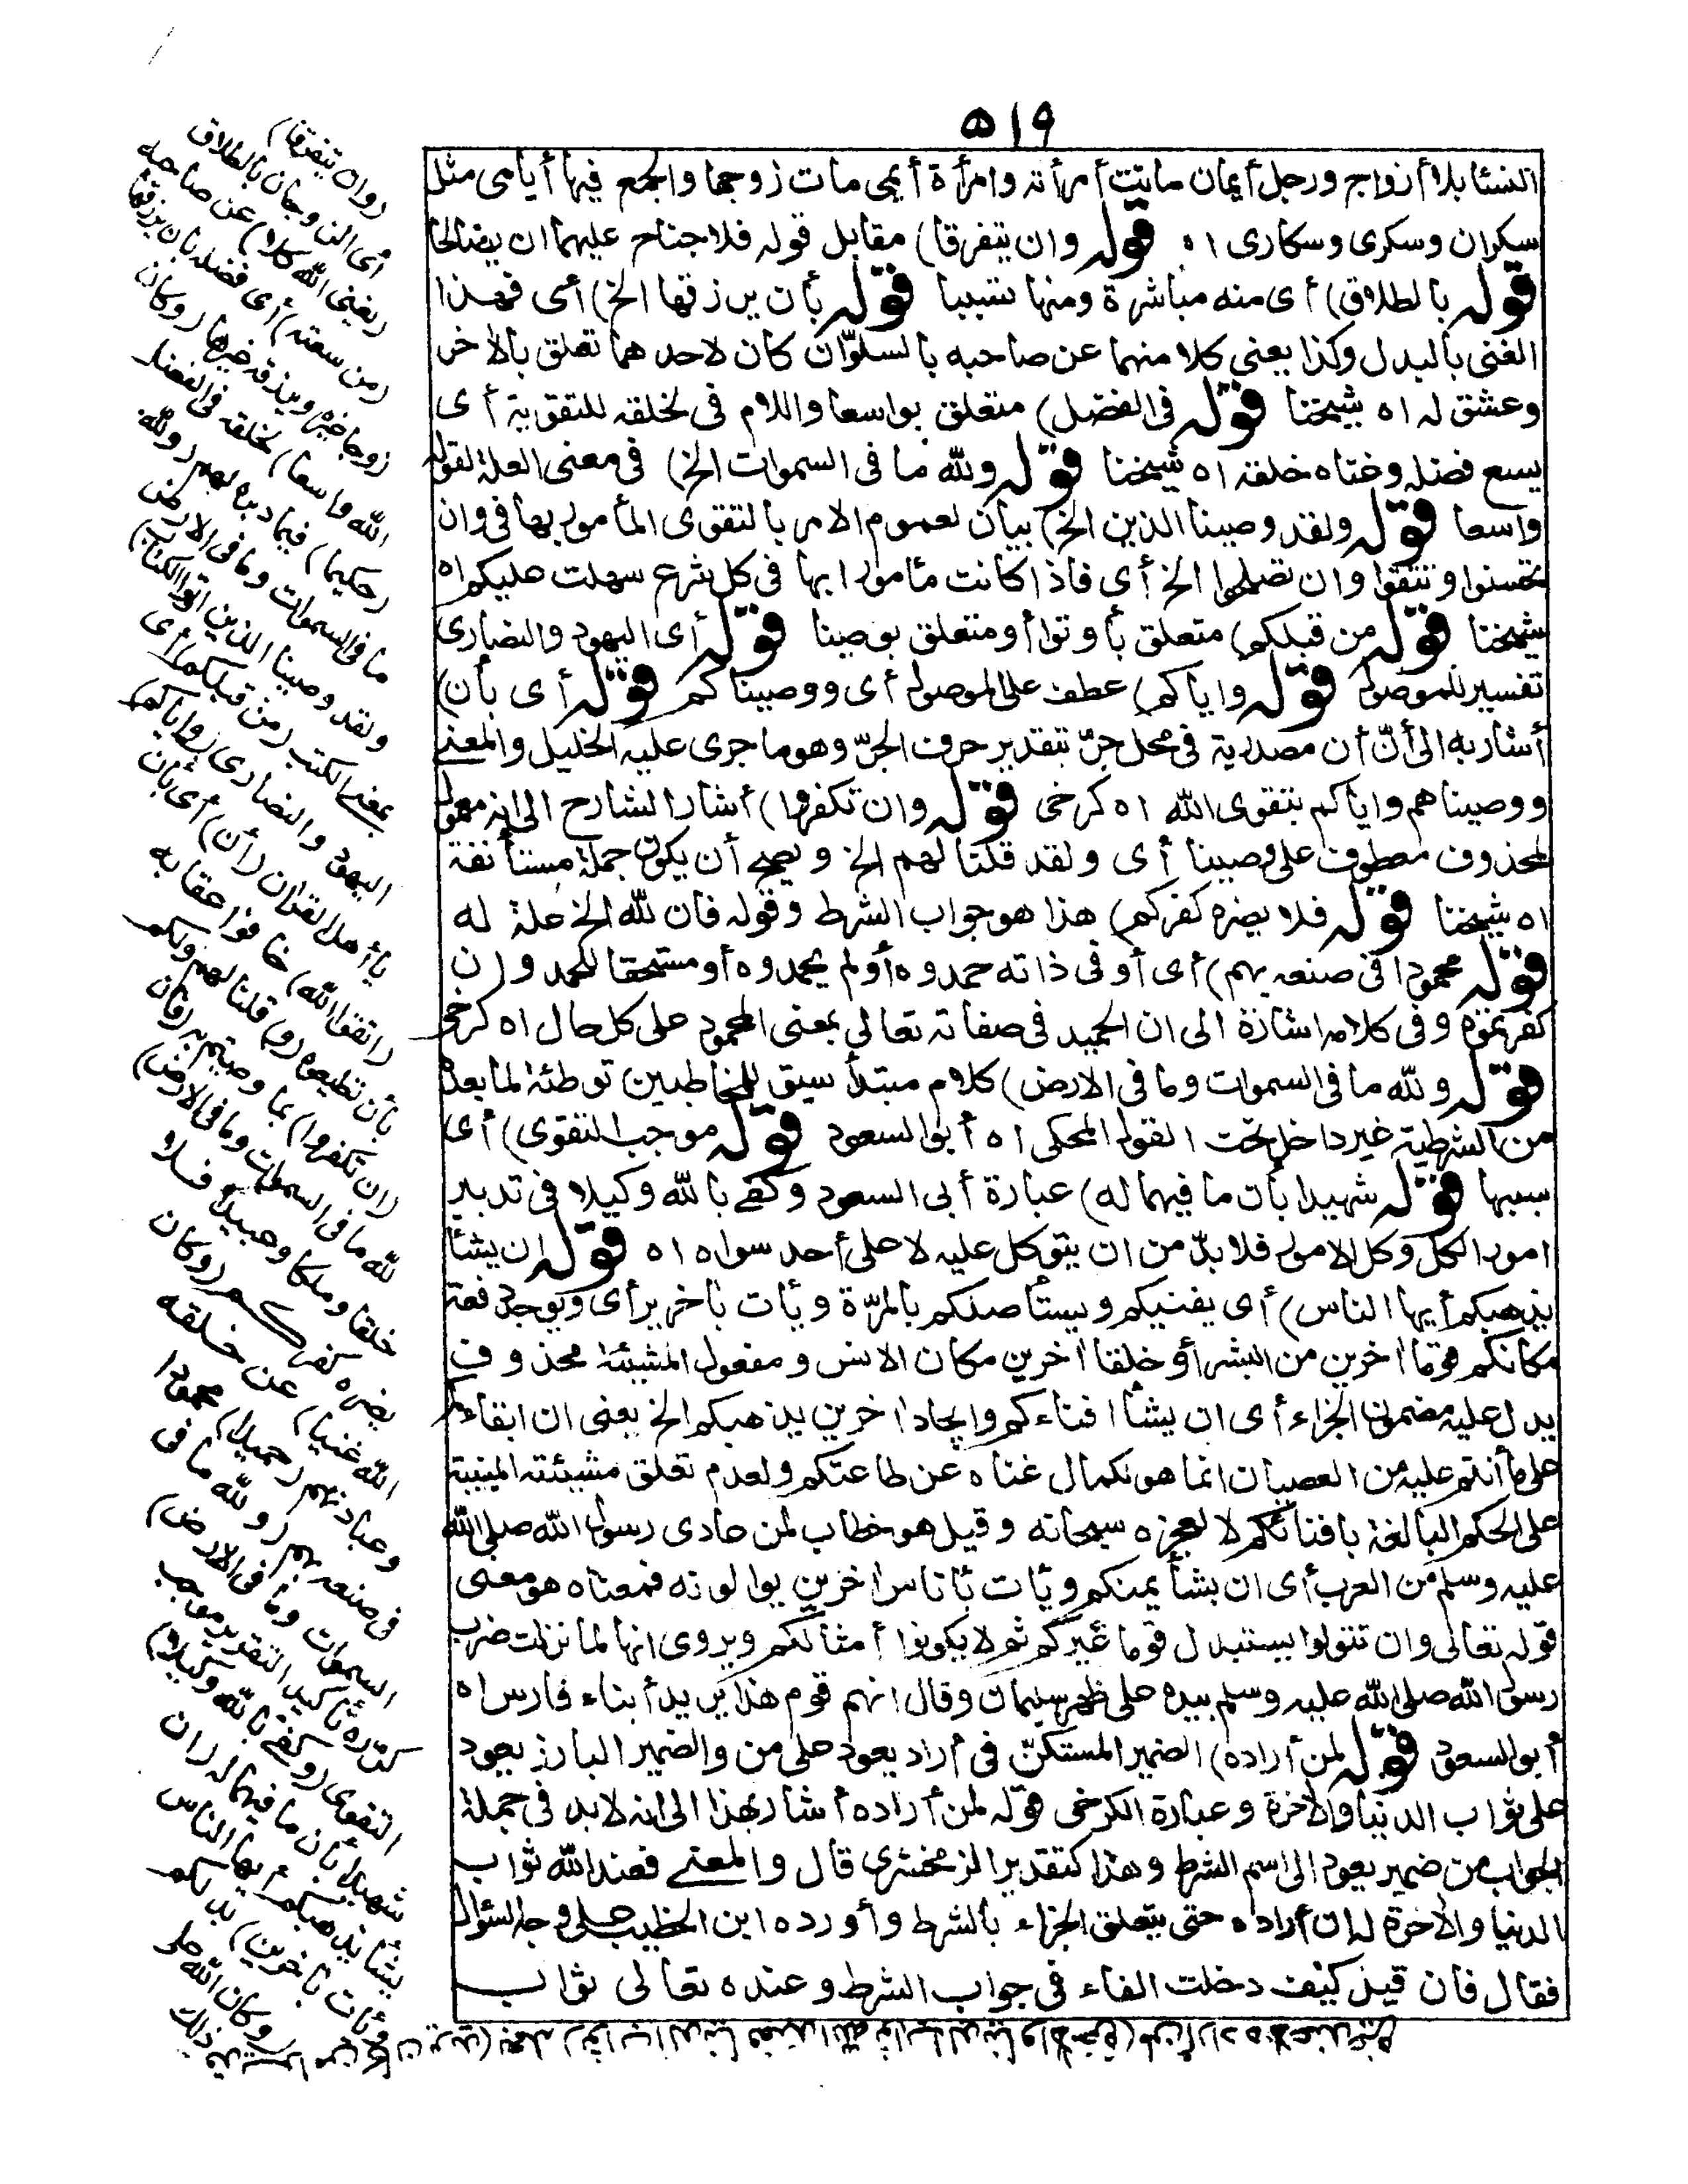 ٥١٩
النساء بلا أزواج ورجل أيمان ماتت أمرأته وامرأة أيمى مات زوجها والجمع فيها أيامى مثل
سكران وسكرى وسكارى اه قوله وان يتفرقا) مقابل قوله فلا جناح عليهما ان يصالحا
قوله بالطلاق) أى منه مباشرة ومنها تسببا قوله بأن يرزقها الخ) أى فهذا
الغنى بالبدل وكذا يعنى كلا منهما عن صاحبه بالسلوّان كان لاحدهما تعلق بالاخر
وعشق له اه شيخنا قوله فى الفضل) متعلق بواسعا واللام فى لخلقه للتقوية أى
يسع فضله وغناه خلقه اه شيخنا قوله ولله ما فى السموات الخ) فى معنى العلة لقوله
واسعا قوله ولقد وصينا الذين الخ) بيان لعموم الامر بالتقوى المأمور بها فى وان
تحسنوا وتتقوا وان تصلحوا الخ أى فاذا كانت مأمورا بها فى كل شرع سهلت عليكم اه
شيخنا قوله من قبلكم) متعلق بأوتوا أو متعلق بوصينا قوله أى اليهود والنصارى
تفسير للموصول قوله واياكم) عطف على الموصول أى ووصيناكم قوله أى بأن)
أشار به الى أنّ أن مصدرية فى محل جرّ بتقدير حرف الجرّ وهو ما جرى عليه الخليل والمعنى
ووصيناهم واياكم بتقوى الله اه كرخى قوله وان تكفروا) أشار الشارح الى انه معمول
لمحذوف معطوف على وصينا أى ولقد قلنا لهم الخ ويصح أن يكون جملة مستأنفة
اه شيخنا قوله فلا يضره كفركم) هذا هو جواب الشرط وقوله فان لله الخ علة له
قوله محمودا فى صنعه بهم) أى أو فى ذاته حمدوه أو لم يحمدوه أو مستحقا للحمد وان
كفرتموه وفى كلامه اشارة الى ان الحميد فى صفاته تعالى بمعنى المحمود على كل حال اه كرخى
قوله ولله ما فى السموات وما فى الارض) كلام مبتدأ سيق للمخاطبين توطئة لما بعده
من الشرطية غير داخل تحت القول المحكى اه أبو السعود قوله موجب التقوى) أى
سببها قوله شهيدا بأن ما فيهما له) عبارة أبى السعود وكفى بالله وكيلا فى تدبير
امور الكل وكل الامور فلا بدّ من ان يتوكل عليه لا على أحد سواه اه قوله ان يشأ
يذهبكم أيها الناس) أى يفنيكم ويستأصلكم بالمرّة ويأت بآخرين أى ويوجد دفعة
مكانكم قوما اخرين من البشر أو خلقا اخرين مكان الانس ومفعول المشيئة محذوف
يدل عليه مضمون الجزاء أى ان يشأ افناءكم وايجاد اخرين يذهبكم الخ يعنى ان ابقاءكم
على ما أنتم عليه من العصيان انما هو لكمال غناه عن طاعتكم ولعدم تعلق مشيئته المبنية
على الحكم البالغة بافنائكم لا لعجزه سبحانه وقيل هو خطاب لمن عادى رسول الله صلى الله
عليه وسلم من العرب أى ان يشأ يمتكم ويأت بأناس اخرين يوالونه فمعناه هو معنى
قوله تعالى وان تتولوا يستبدل قوما غيركم ثم لا يكونوا أمثالكم ويروى انها لما نزلت ضرب
رسول الله صلى الله عليه وسلم بيده على ظهر سلمان وقال انهم قوم هذا يريد أبناء فارس اه
أبو السعود قوله لمن أراده) الضمير المستكنّ فى أراد يعود على من والضمير البارز يعود
على ثواب الدنيا والاخرة وعبارة الكرخى قوله لمن أراده أشار بهذا الى انه لا بد فى جملة
الجواب من ضمير يعود الى اسم الشرط وهذا كتقدير الزمخشرى قال والمعنى فعند الله ثواب
الدنيا والاخرة له ان أراده حتى يتعلق الجزاء بالشرط وأورده ابن الخطيب على وجه السؤال
فقال فان قيل كيف دخلت الفاء فى جواب الشرط وعنده تعالى ثواب
(وان يتفرقا)
أى الزوجان بالطلاق
(يغنى الله كلا) عن صاحبه
(من سعته) أى فضله بأن يرزقها
زوجا غيره ويرزقه غيرها (وكان
الله واسعا) لخلقه فى الفضل
(حكيما) فيما دبره لهم (ولله
ما فى السموات وما فى الارض
ولقد وصينا الذين اوتوا الكتاب)
بمعنى الكتب (من قبلكم) أى
اليهود والنصارى (واياكم)
يا أهل القران (أن) أى بأن
(اتقوا الله) خافوا عقابه
بأن تطيعوه (و) قلنا لهم ولكم
(ان تكفروا) بما وصيتم به (فان
لله ما فى السموات وما فى الارض)
خلقا وملكا وعبيدا فلا
يضره كفركم (وكان
الله غنيا) عن خلقه
وعبادتهم (حميدا) محمودا
فى صنعه بهم (ولله ما فى
السموات وما فى الارض)
كرّره تأكيدا لتقرير موجب
التقوى (وكفى بالله وكيلا)
شهيدا بأن ما فيهما له (ان
يشأ يذهبكم أيها الناس
ويأت بآخرين) بدلكم
(وكان الله على
ذلك قديرا من كان يريد) بعمله (ثواب الدنيا فعند الله ثواب الدنيا والاخرة) لمن أراده لا عند غيره